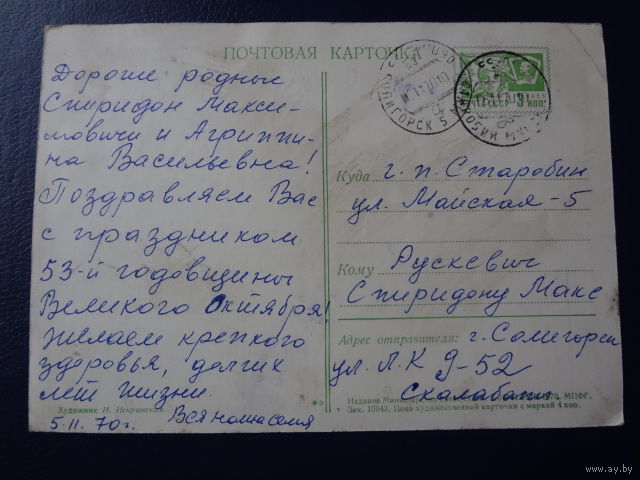 ПОЧТОВАЯ КАРТОЧКА
Дорогие родные
Спиридон Макси-
мович и Агриппи-
на Васильевна!
Поздравляем Вас
с праздником
53-й годовщины
Великого Октября!
Желаем крепкого
здоровья, долгих
лет жизни.
Вся наша семья
5.11.70г.
Художник И. Искринская.
СССР
3 КОП.
Куда г. п. Старобин
ул. Майская-5
Кому Рускевич
Спиридону Макс
Адрес отправителя: г. Солигорск
ул. Л.К 9-52
Скалабан
Издание Министерства МПФГ.
Зак. 15043. Цена художественной карточки с маркой 4 коп.
ay.by